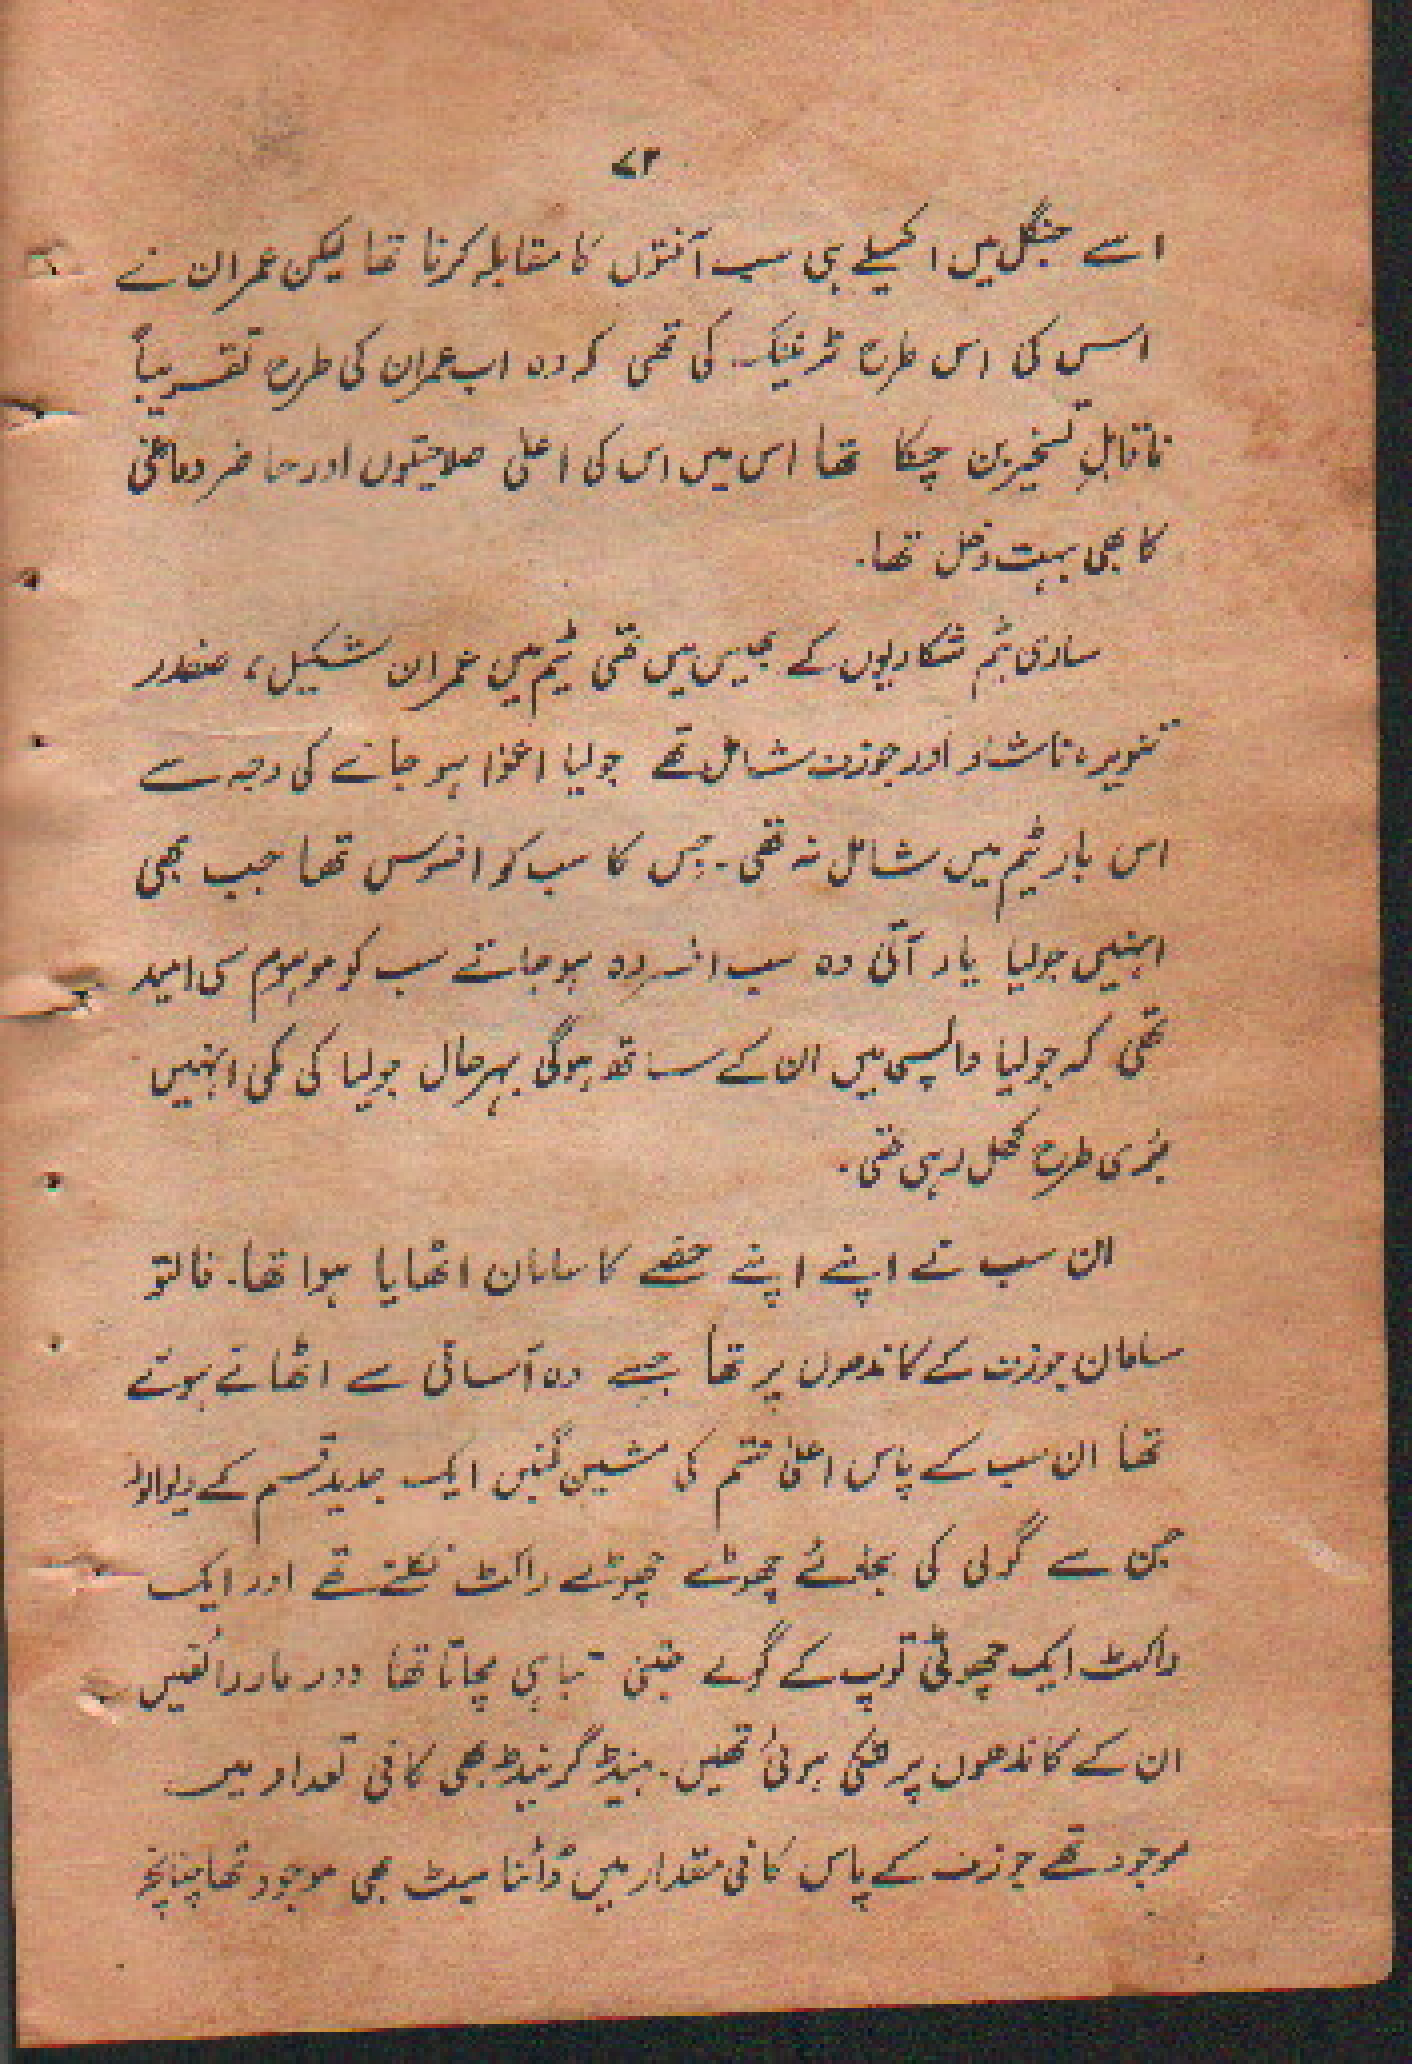 ۷۲
اسے جنگل میں اکیلے ہی سب آفتوں کا مقابلہ کرنا تھا لیکن عمران نے
اس کی اس طرح ٹریننگ کی تھی کہ وہ اب عمران کی طرح تقریباً
ناقابلِ تسخیر بن چکا تھا اس میں اس کی اعلیٰ صلاحیتوں اور حاضر دماغی
کا بھی بہت دخل تھا۔
ساری ٹیم شکاریوں کے بھیس میں تھی ٹیم میں عمران شکیل، صفدر
تنویر، ناشاد اور جوزف شامل تھے جولیا اغوا ہو جانے کی وجہ سے
اس بار ٹیم میں شامل نہ تھی۔ جس کا سب کو افسوس تھا جب بھی
انہیں جولیا یاد آتی وہ سب افسردہ ہو جاتے سب کو موہوم سی امید
تھی کہ جولیا واپسی میں ان کے ساتھ ہوگی بہرحال جولیا کی کمی انہیں
بُری طرح کھل رہی تھی۔
ان سب نے اپنے اپنے حصے کا سامان اٹھایا ہوا تھا۔ فالتو
سامان جوزف کے کاندھوں پر تھا جسے وہ آسانی سے اٹھائے ہوئے
تھا ان سب کے پاس اعلیٰ قسم کی مشین گنیں ایک جدید قسم کے ریوالور
جن سے گولی کی بجائے چھوٹے چھوٹے راکٹ نکلتے تھے اور ایک
راکٹ ایک چھوٹی توپ کے گولے جتنی تباہی مچاتا تھا دور مار رائفلیں
ان کے کاندھوں پر لٹکی ہوئی تھیں۔ ہینڈ گرنیڈ بھی کافی تعداد میں
موجود تھے جوزف کے پاس کافی مقدار میں ڈائنامیٹ بھی موجود تھا چنانچہ